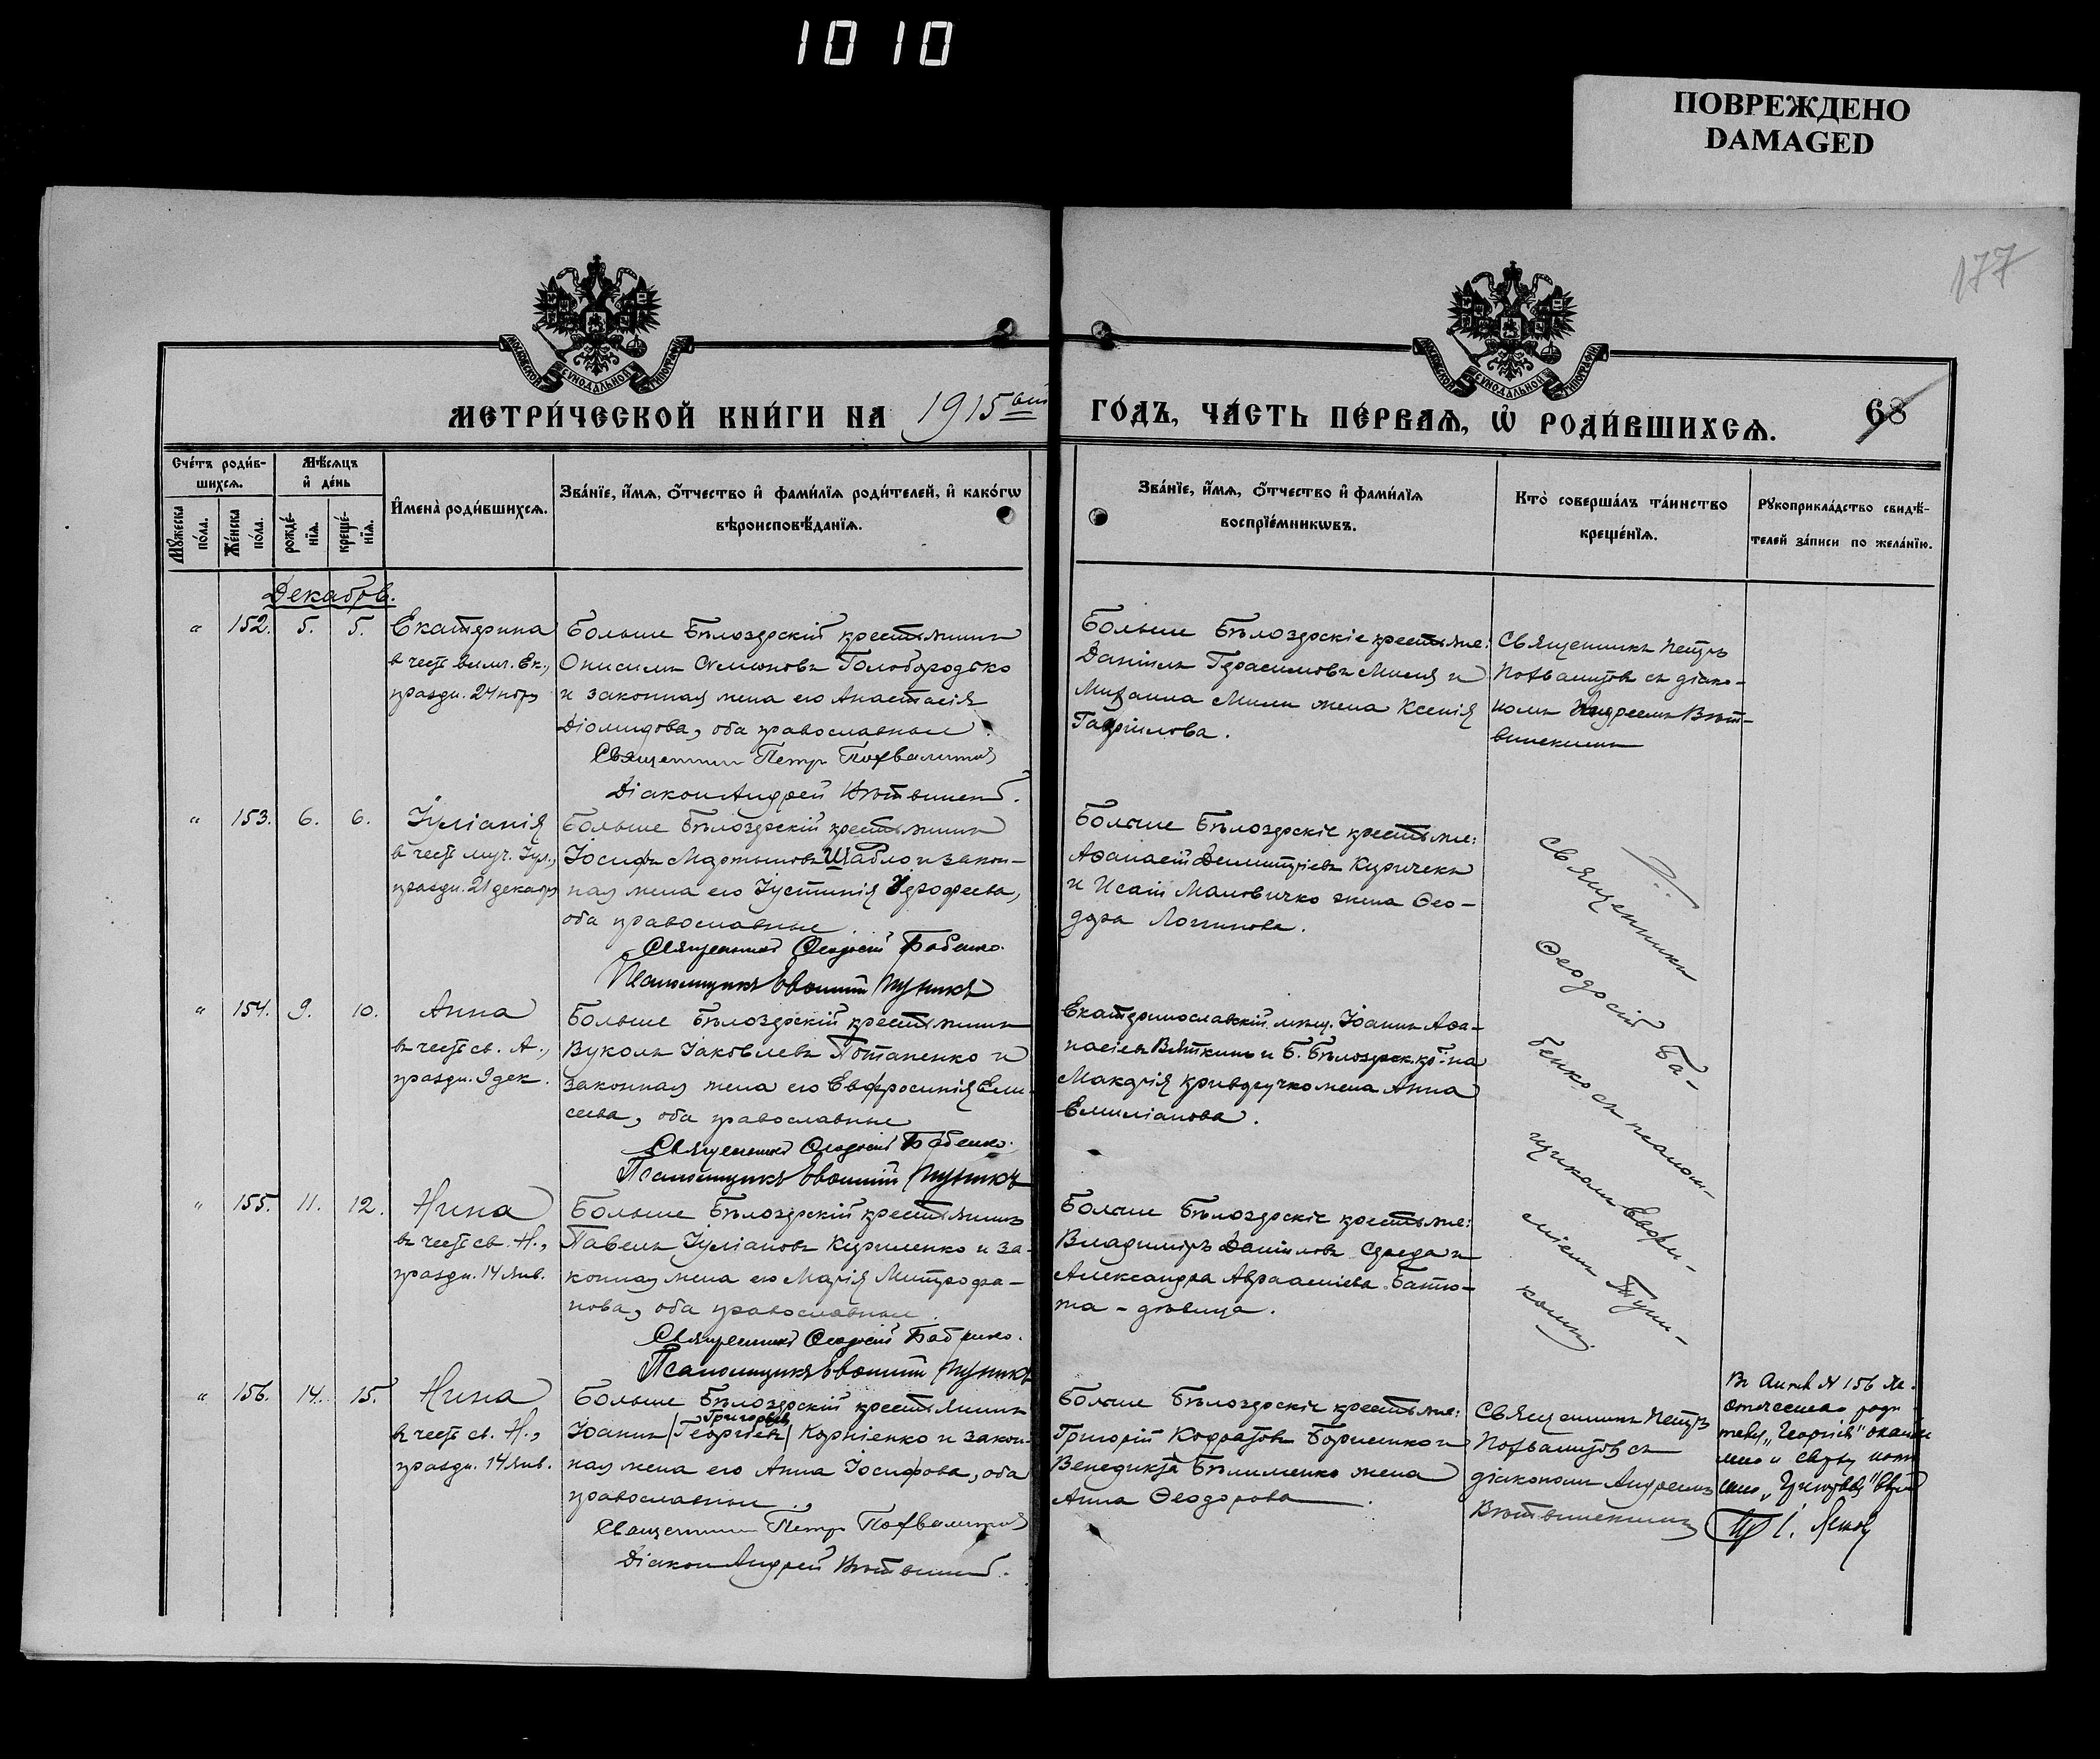 1010
ПОВРЕЖДЕНО
DAMAGED
177
МОСКОВСКОЙ СѴНОДАЛЬНОЙ ТИПОГРАФІИ
МОСКОВСКОЙ СѴНОДАЛЬНОЙ ТИПОГРАФІИ
МЕТРИ́ЧЕСКОЙ КНИ́ГИ НА 1915ый ГО́ДЪ, ЧА́СТЬ ПЕ́РВАѦ, Ѡ҆ РОДИ́ВШИХСѦ.
68
Сче́тъ роди́в-
шихсѧ.
Мꙋ́жеска по́ла.
Же́нска по́ла.
Мѣ́сѧцъ
и҆ де́нь
рожде́-
нїѧ.
креще́-
нїѧ.
И҆мена̀ роди́вшихсѧ.
Зва́нїе, и҆́мѧ, ѻ҆́тчество и҆ фами́лїѧ роди́телей, и҆ како́гѡ
вѣроисповѣ́данїѧ.
Зва́нїе, и҆́мѧ, ѻ҆́тчество и҆ фами́лїѧ
воспрїе́мникѡвъ.
Кто̀ соверша́лъ та́инство
креще́нїѧ.
Рꙋкоприкла́дство свидѣ́-
телей за́писи по жела́нїю.
Декабрь.
" 152. 5. 5.
Екатерина
в честь велмч. Ек.,
праздн. 24 нояб.
Больше Бѣлозерскій крестьянинъ
Онисимъ Сѵмеоновъ Голобородько
и законная жена его Анастасія
Діомидова, оба православные.
Священникъ Петръ Похвалитовъ
Діаконъ Андрей Вѣтвинскій.
Больше Бѣлозерскіе крестьяне:
Даніилъ Герасимовъ Миляя и
Михаила Милии жена Ксенія
Гавріилова.
Священникъ Петръ
Похвалитовъ съ діако-
номъ Андреемъ Вѣт-
винскимъ
" 153. 6. 6.
Іуліанія
в честь муч. Іул.,
праздн. 21 декабря
Больше Бѣлозерскій крестьянинъ
Іосифъ Мартыновъ Шабло и закон-
ная жена его Іустинія Ерофеева,
оба православные.
Священникъ Ѳеодосій Бабенко.
Псаломщикъ Евѳимій Пупикъ
Больше Бѣлозерскіе крестьяне:
Аѳанасій Димитріевъ Киричекъ
и Исаіи Маловичко жена Ѳео-
дора Логгинова.
Священникъ
Ѳеодосій Ба-
бенко съ псалом-
щикомъ Евѳи-
міемъ Пупи-
комъ.
" 154. 9. 10.
Анна
въ честь св. А.,
праздн. 9 дек.
Больше Бѣлозерскій крестьянинъ
Вуколъ Іаковлевъ Потапенко и
законная жена его Евфросинія Ели-
сеева, оба православные
Священникъ Ѳеодосій Бабенко.
Псаломщикъ Евѳимій Пупикъ
Екатеринославскій мѣщ. Іоаннъ Аѳа-
насіевъ Вяткинъ и Б. Бѣлозерск. кр-на
Макарія Криворучко жена Анна
Емиліанова.
" 155. 11. 12.
Нина
въ честь св. Н.,
праздн. 14 янв.
Больше Бѣлозерскій крестьянинъ
Павелъ Іуліановъ Кириленко и за-
конная жена его Марія Митрофа-
нова, оба православные.
Священникъ Ѳеодосій Бабенко.
Псаломщикъ Евѳимій Пупикъ
Больше Бѣлозерскіе крестьяне:
Владиміръ Даніиловъ Середа и
Александра Авраамiева Батю-
та - дѣвица.
" 156. 14. 15.
Нина
въ честь св. Н.,
праздн. 14 янв.
Больше Бѣлозерскій крестьянинъ
Григорьевъ
Іоаннъ (Георгіевъ) Корніенко и закон-
ная жена его Анна Іосифова, оба
православные.
Священникъ Петръ Похвалитовъ
Діаконъ Андрей Вѣтвинскій.
Больше Бѣлозерскіе крестьяне:
Григорій Кодратовъ Борисенко и
Венедикта Бѣлименко жена
Анна Ѳеодорова.
Священникъ Петръ
Похвалитовъ съ
діакономъ Андреемъ
Вѣтвинскимъ
Въ актѣ № 156
отчество роди-
теля "Георгіевъ"
и сверху
"Григорьевъ"